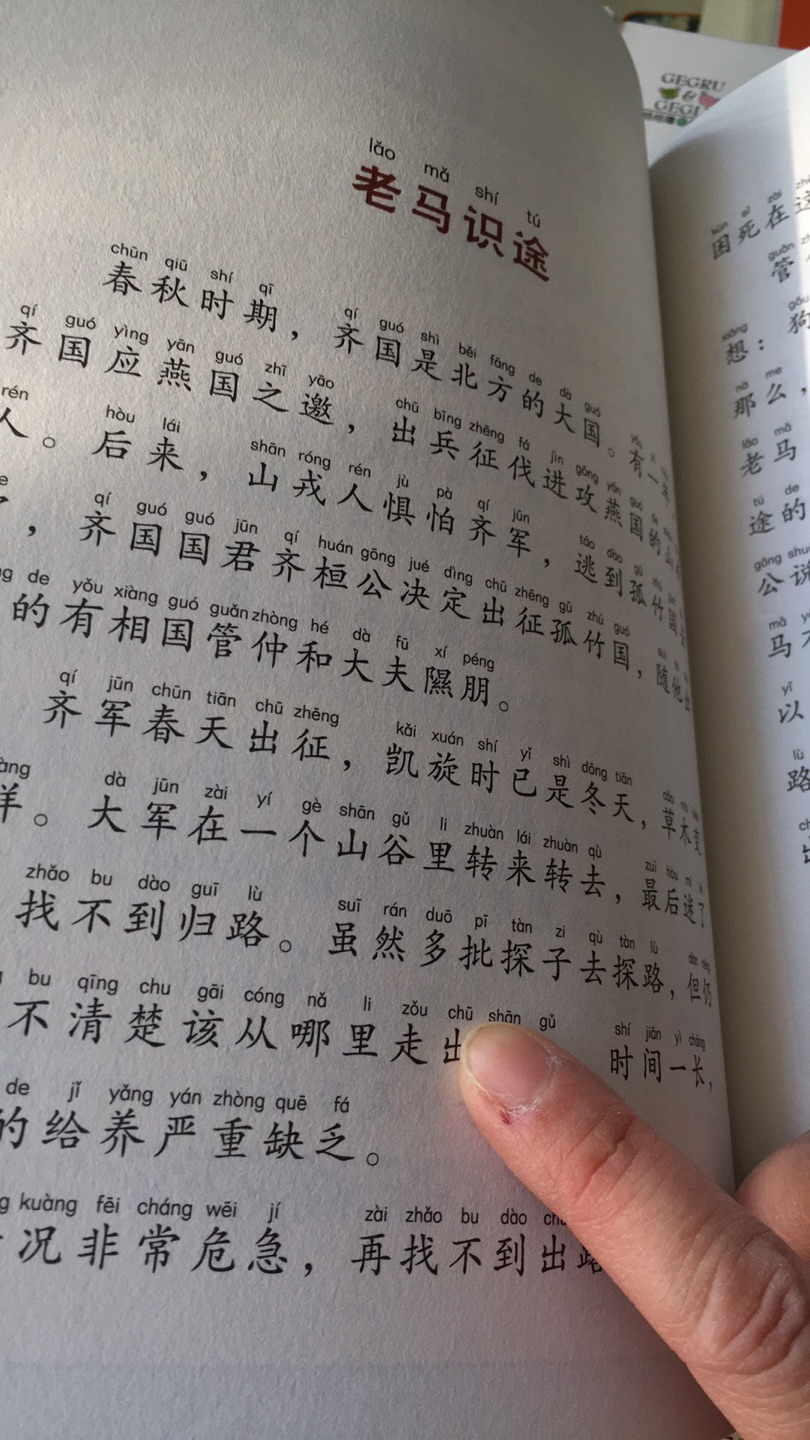 lǎo mǎ shí tú
老马识途
chūn qiū shí qī qí guó shì běi fāng de dà guó
春秋时期，齐国是北方的大国。有一年
qí guó yìng yān guó zhī yāo chū bīng zhēng fá jìn gōng yān guó de
齐国应燕国之邀，出兵征伐进攻燕国的山
rén hòu lái shān róng rén jù pà qí jūn táo dào gū zhú guó
人。后来，山戎人惧怕齐军，逃到孤竹国
qí guó guó jūn qí huán gōng jué dìng chū zhēng gū zhú guó
，齐国国君齐桓公决定出征孤竹国，随他
de yǒu xiàng guó guǎn zhòng hé dà fū xí péng
的有相国管仲和大夫隰朋。
qí jūn chūn tiān chū zhēng kǎi xuán shí yǐ shì dōng tiān cǎo mù
齐军春天出征，凯旋时已是冬天，草木变
yàng dà jūn zài yí gè shān gǔ li zhuàn lái zhuàn qù zuì hòu mí
样。大军在一个山谷里转来转去，最后迷了
zhǎo bu dào guī lù suī rán duō pī tàn zi qù tàn lù dàn réng
找不到归路。虽然多批探子去探路，但仍
bu qīng chu gāi cóng nǎ li zǒu chū shān gǔ shí jiān yì cháng
不清楚该从哪里走出 时间一长，
de jǐ yǎng yán zhòng quē fá
的给养严重缺乏。
kuàng fēi cháng wēi jí zài zhǎo bu dào
况非常危急，再找不到出路
GEGRU
&
kùn sǐ zài
困死在这
guǎn
管
xiǎng
想：狗
nà me
那么，
lǎo mǎ
老马
tú de
途的
gōng shuō
公说
mǎ
马
yǐ
以
lù
路